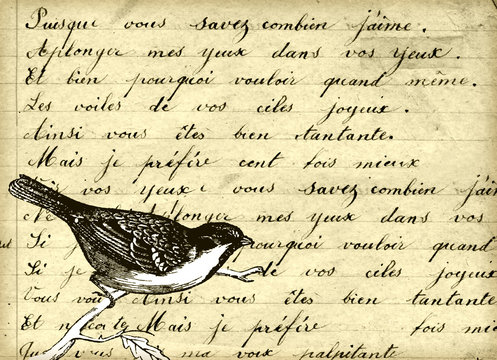 Puisque vous savez combien j'aime.
A plonger mes yeux dans vos yeux.
Et bien pourquoi vouloir quand même.
Les voiles de vos ciles joyeux.
Ainsi vous êtes bien tantante.
Mais je préfére cent fois mieux
vos yeux vous savez combien j'aim
plonger mes yeux dans vos
Si j pourquoi vouloir quand
Si je dé vos ciles joyeux
Vous vou Ainsi vous êtes bien tantante
Et Mais je préfére fois mie
vous ma voix palpitant